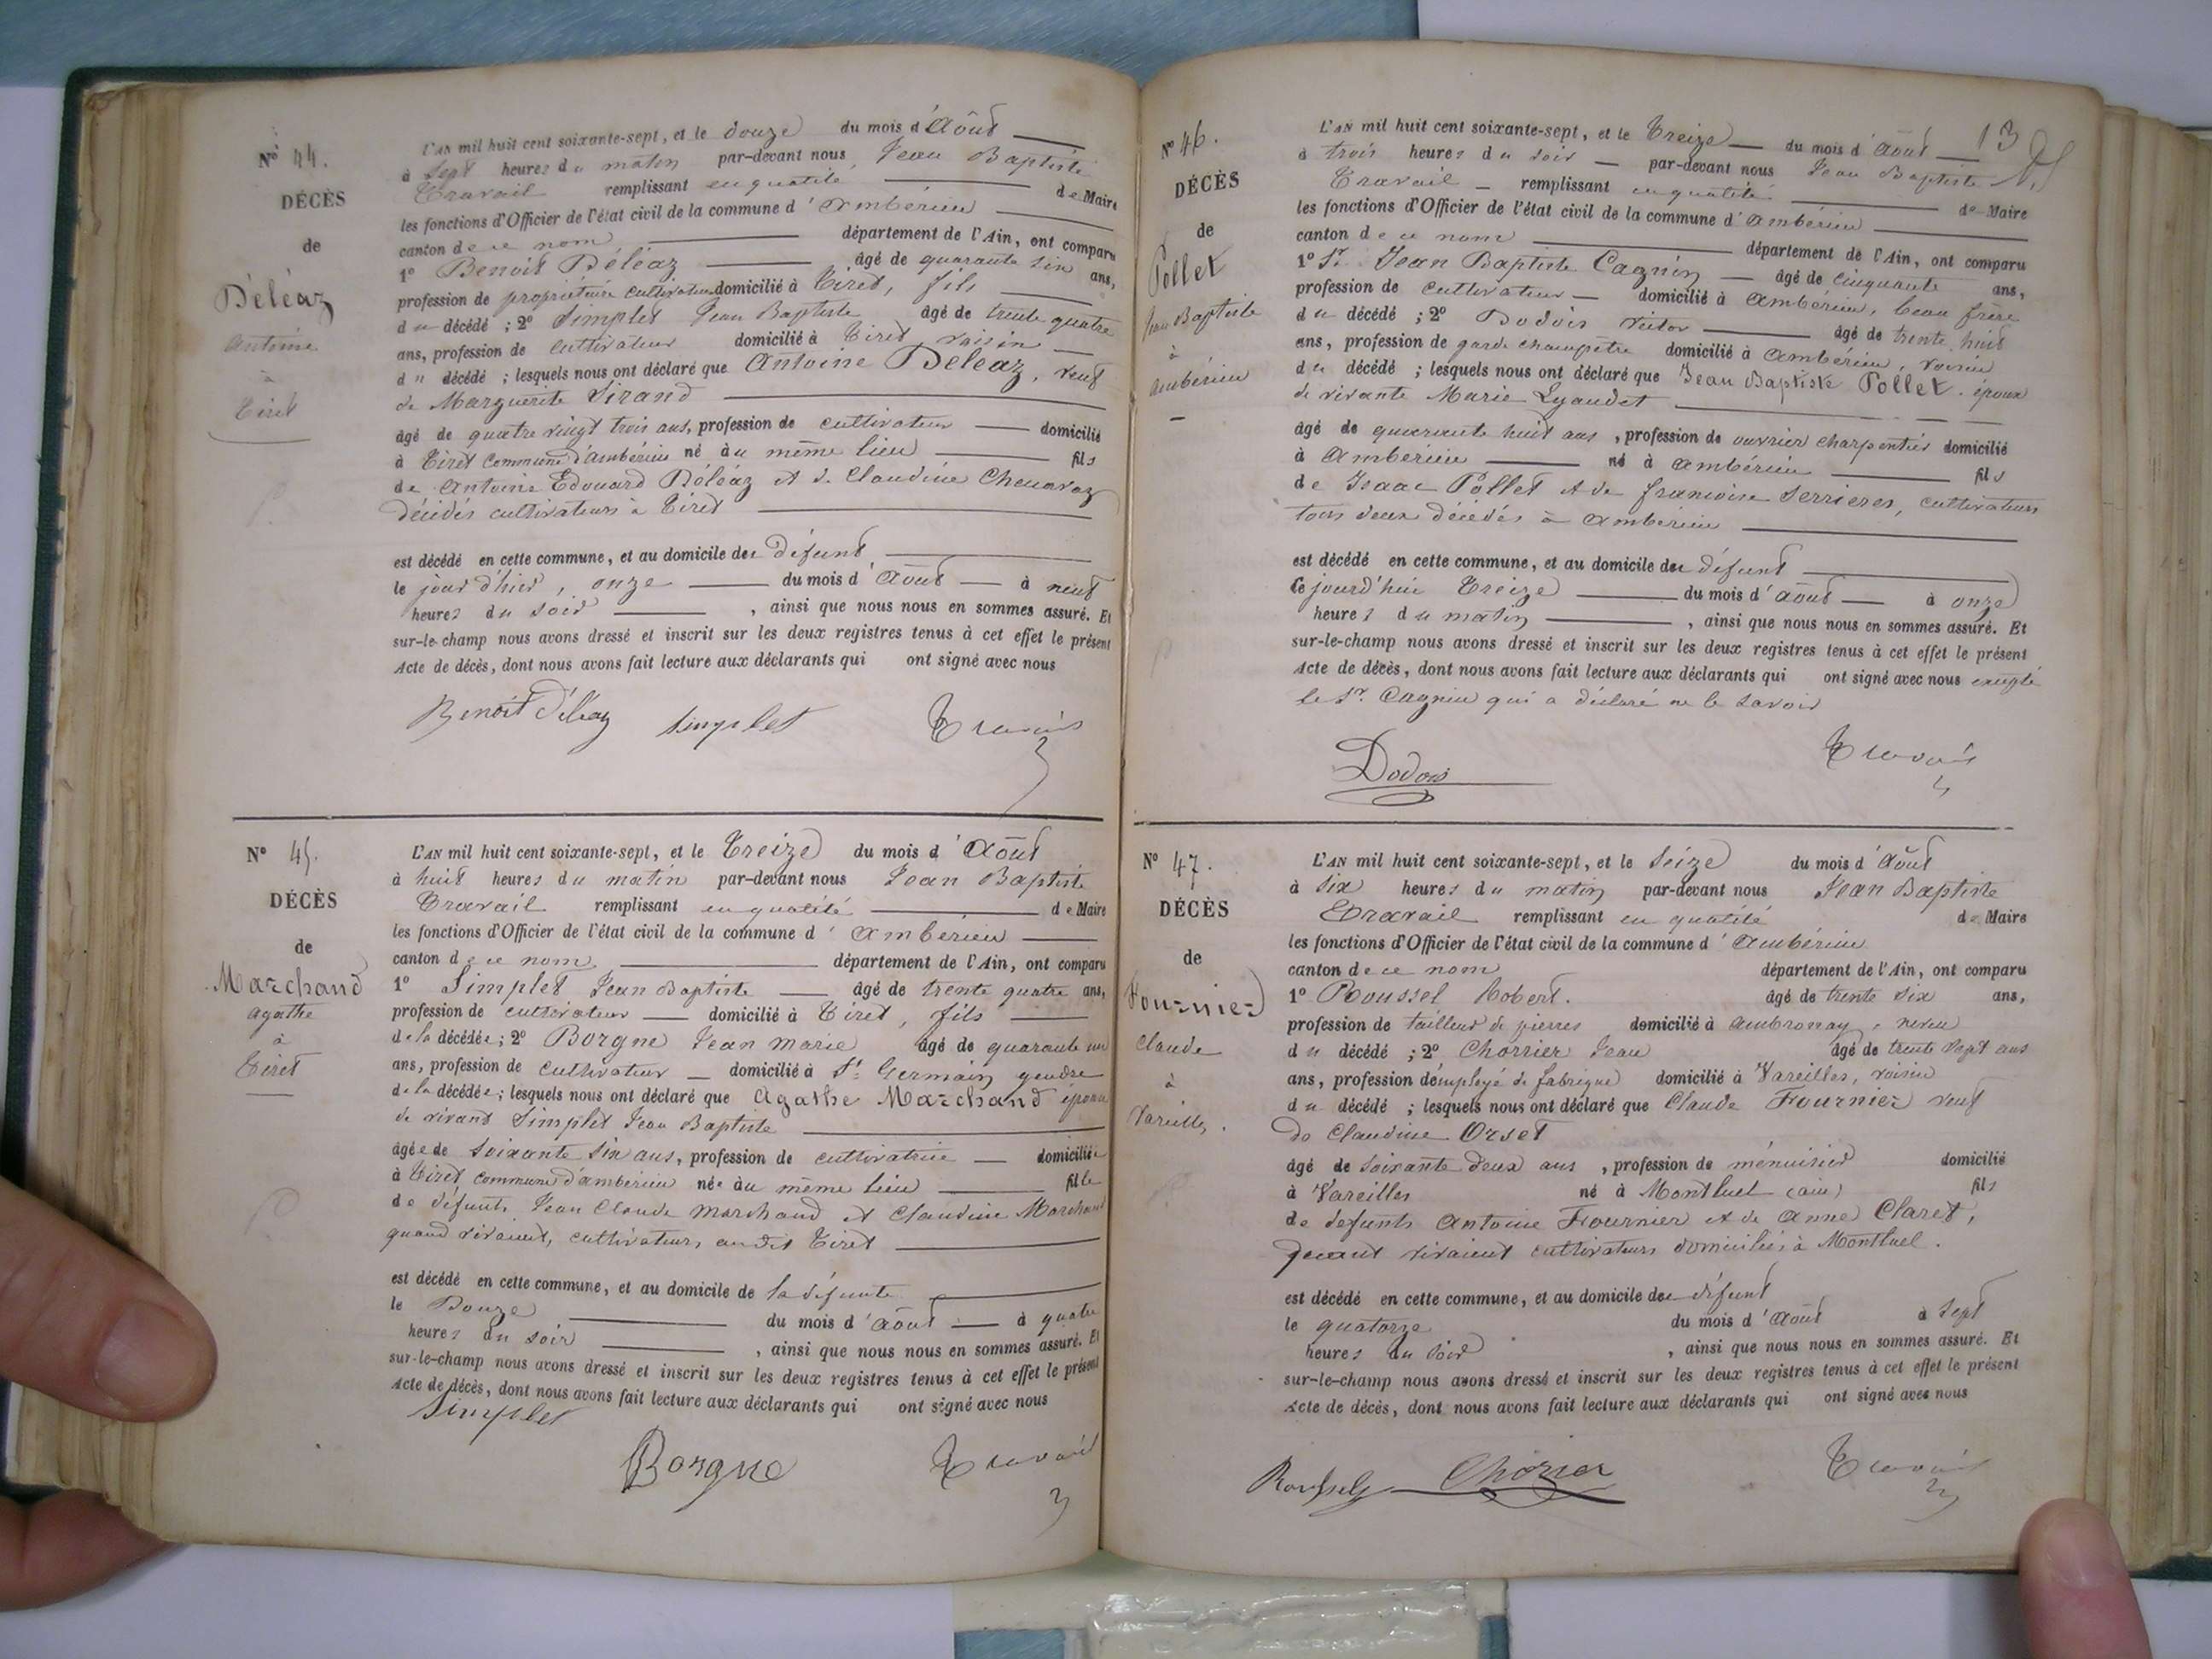 N° 44.
DÉCÈS
de
Déléaz
Antoine
à
Tiret
L'AN mil huit cent soixante-sept, et le douze du mois d'Août
à sept heures du matin par-devant nous Jean Baptiste
Travail remplissant en qualité de Maire
les fonctions d'Officier de l'état civil de la commune d'Ambérieu
canton de ce nom département de l'Ain, ont comparu
1° Benoit Déléaz âgé de quarante six ans,
profession de propriétaire cultivateur domicilié à Tiret, fils
du décédé ; 2° Simplet Jean Baptiste âgé de trente quatre
ans, profession de cultivateur domicilié à Tiret voisin
du décédé ; lesquels nous ont déclaré que Antoine Déléaz, veuf
de Marguerite Sirand
âgé de quatre vingt trois ans, profession de cultivateur domicilié
à Tiret commune d'Ambérieu né au même lieu fils
de Antoine Edouard Déléaz et de Claudine Chenavaz
décédés cultivateurs à Tiret
est décédé en cette commune, et au domicile du défunt
le jour d'hier, onze du mois d'Août à neuf
heures du soir , ainsi que nous nous en sommes assuré. Et
sur-le-champ nous avons dressé et inscrit sur les deux registres tenus à cet effet le présent
Acte de décès, dont nous avons fait lecture aux déclarants qui ont signé avec nous
Benoit Déléaz Simplet Travail
N° 45.
DÉCÈS
de
Marchand
Agathe
à
Tiret
L'AN mil huit cent soixante-sept, et le Treize du mois d'Août
à huit heures du matin par-devant nous Jean Baptiste
Travail remplissant en qualité de Maire
les fonctions d'Officier de l'état civil de la commune d'Ambérieu
canton de ce nom département de l'Ain, ont comparu
1° Simplet Jean Baptiste âgé de trente quatre ans,
profession de cultivateur domicilié à Tiret, fils
de la décédée ; 2° Borgne Jean Marie âgé de quarante un
ans, profession de cultivateur domicilié à St Germain gendre
de la décédée ; lesquels nous ont déclaré que Agathe Marchand épouse
de vivant Simplet Jean Baptiste
âgée de soixante six ans, profession de cultivatrice domiciliée
à Tiret commune d'Ambérieu née au même lieu fille
de défunts Jean Claude Marchand et Claudine Marchand
quand vivaient, cultivateurs audit Tiret
est décédé en cette commune, et au domicile de la défunte
le Douze du mois d'Août à quatre
heures du soir , ainsi que nous nous en sommes assuré. Et
sur-le-champ nous avons dressé et inscrit sur les deux registres tenus à cet effet le présent
Acte de décès, dont nous avons fait lecture aux déclarants qui ont signé avec nous
Simplet
Borgne Travail
13
N° 46.
DÉCÈS
de
Pollet
Jean Baptiste
à
Ambérieu
L'AN mil huit cent soixante-sept, et le Treize du mois d'Août
à trois heures du soir par-devant nous Jean Baptiste
Travail remplissant en qualité de Maire
les fonctions d'Officier de l'état civil de la commune d'Ambérieu
canton de ce nom département de l'Ain, ont comparu
1° Sr Jean Baptiste Cagnin âgé de cinquante ans,
profession de cultivateur domicilié à Ambérieu, beau frère
du décédé ; 2° Dodois Victor âgé de trente huit
ans, profession de garde champêtre domicilié à Ambérieu, voisin
du décédé ; lesquels nous ont déclaré que Jean Baptiste Pollet. époux
de vivante Marie Lyaudet
âgé de quarante huit ans, profession de ouvrier charpentier domicilié
à Ambérieu né à Ambérieu fils
de Isaac Pollet et de françoise Serrieres, cultivateurs
tous deux décédés à Ambérieu
est décédé en cette commune, et au domicile du défunt
Ce jourd'hui Treize du mois d'Août à onze
heures du matin , ainsi que nous nous en sommes assuré. Et
sur-le-champ nous avons dressé et inscrit sur les deux registres tenus à cet effet le présent
Acte de décès, dont nous avons fait lecture aux déclarants qui ont signé avec nous excepté
le Sr. Cagnin qui a déclaré ne le savoir
Dodois Travail
N° 47.
DÉCÈS
de
Fournier
Claude
à
Vareilles.
L'AN mil huit cent soixante-sept, et le Seize du mois d'Août
à six heures du matin par-devant nous Jean Baptiste
Travail remplissant en qualité de Maire
les fonctions d'Officier de l'état civil de la commune d'Ambérieu
canton de ce nom département de l'Ain, ont comparu
1° Roussel Robert. âgé de trente six ans,
profession de tailleur de pierres domicilié à Ambronay, neveu
du décédé ; 2° Chorrier Jean âgé de trente sept ans
ans, profession d'employé de fabrique domicilié à Vareilles, voisin
du décédé ; lesquels nous ont déclaré que Claude Fournier veuf
de Claudine Orset
âgé de soixante deux ans, profession de ménuisier domicilié
à Vareilles né à Montluel (ain) fils
de défunts Antoine Fournier et de Anne Claret,
quand vivaient cultivateurs domiciliés à Montluel.
est décédé en cette commune, et au domicile du défunt
le quatorze du mois d'Août à sept
heures du soir , ainsi que nous nous en sommes assuré. Et
sur-le-champ nous avons dressé et inscrit sur les deux registres tenus à cet effet le présent
Acte de décès, dont nous avons fait lecture aux déclarants qui ont signé avec nous
Roussel Chorier Travail